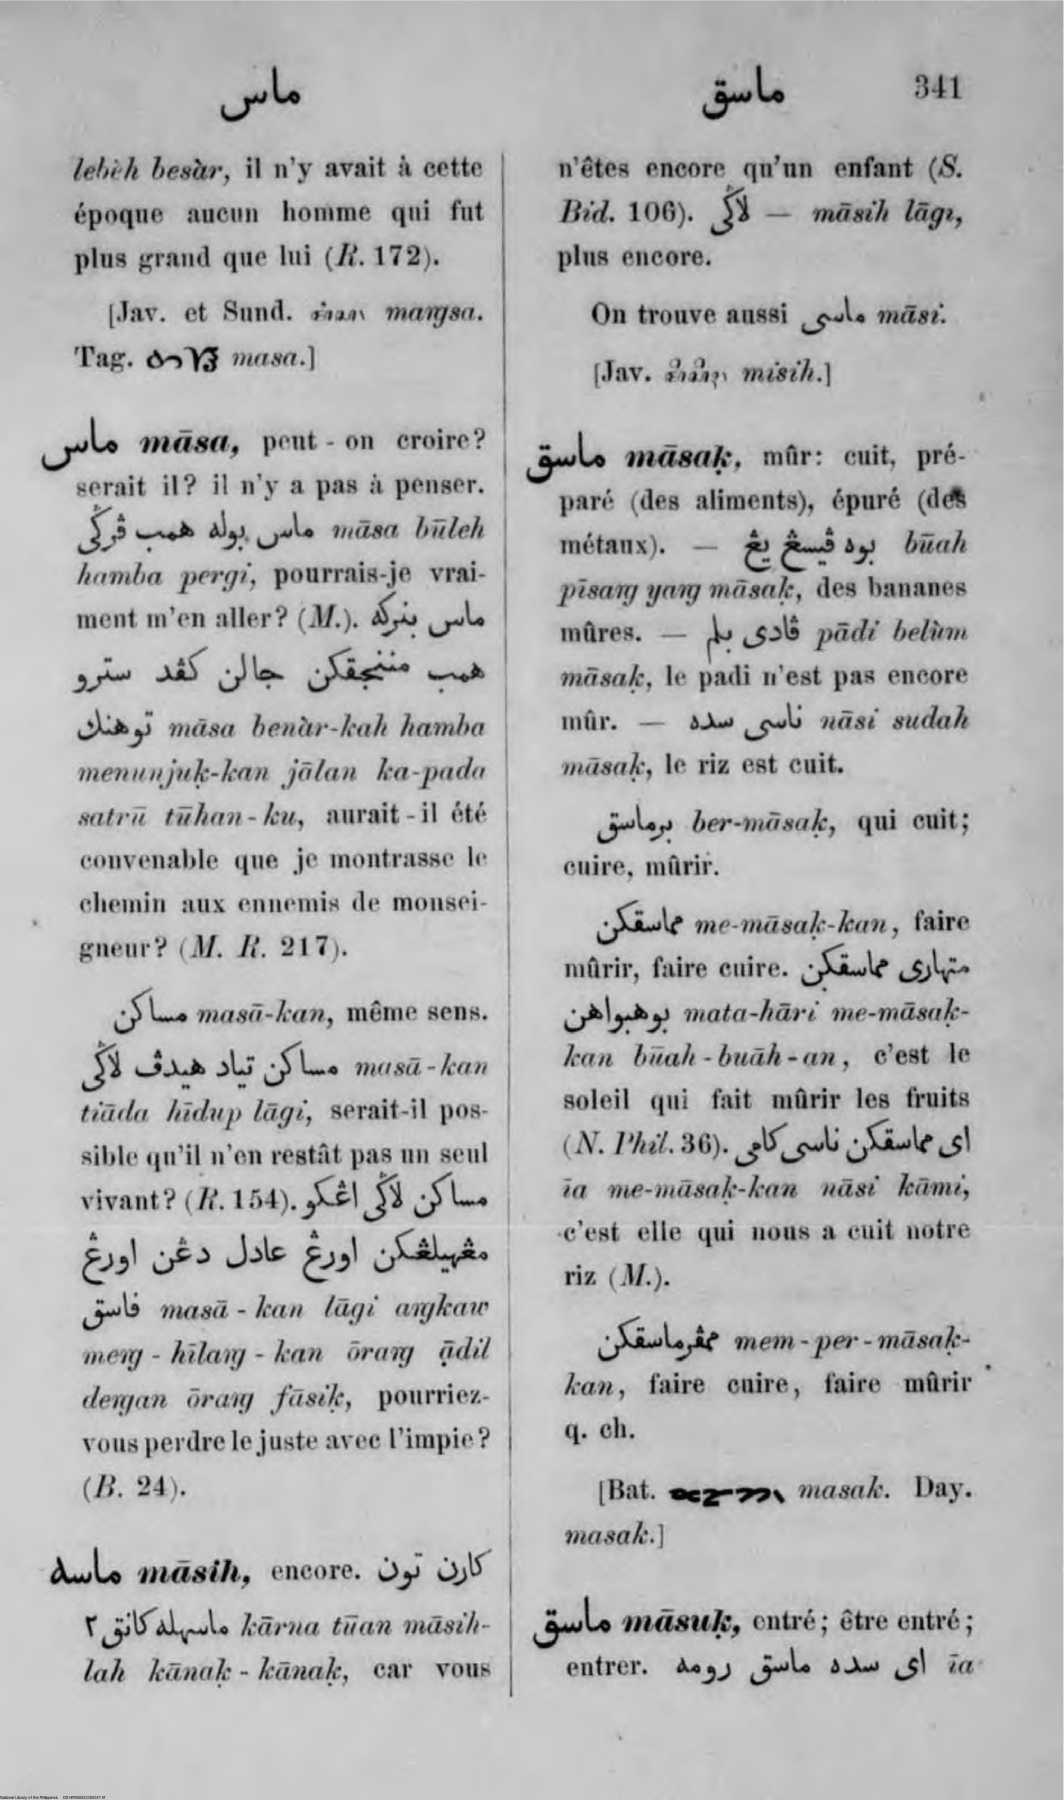 ماس
ماسق
341
lebèh besàr, il n'y avait à cette
époque aucun homme qui fut
plus grand que lui (R. 172).
[Jav. et Sund. maṃsa.
Tag. masa.]
ماس māsa, peut-on croire?
serait il? il n'y a pas à penser.
ماس بوله همب ڤرݢي māsa būleh
hamba pergi, pourrais-je vrai-
ment m'en aller? (M.). ماس بنركه
همب مننجقكن جالن كڤد سترو
توهنك māsa benàr-kah hamba
menunjuḳ-kan jālan ka-pada
satrū tūhan-ku, aurait-il été
convenable que je montrasse le
chemin aux ennemis de monsei-
gneur? (M. R. 217).
مساكن masā-kan, même sens.
مساكن تياد هيدڤ لاݢي masā-kan
tiāda hīdup lāgi, serait-il pos-
sible qu'il n'en restât pas un seul
vivant? (R. 154). مساكن لاݢي اڠكو
مڠهيلڠكن اورڠ عادل دڠن اورڠ
فاسق masā-kan lāgi aŋkaw
meŋ-hīlaŋ-kan ōraŋ ạ̄dil
deŋan ōraŋ fāsiḳ, pourriez-
vous perdre le juste avec l'impie?
(B. 24).
ماسه māsih, encore. كارن تون
ماسهله كانق ٢ kārna tūan māsih-
lah kānaḳ-kānaḳ, car vous
n'êtes encore qu'un enfant (S.
Bid. 106). لاݢي — māsih lāgi,
plus encore.
On trouve aussi ماسى māsi.
[Jav. misih.]
ماسق māsaḳ, mûr: cuit, pré-
paré (des aliments), épuré (des
métaux). — بوه ڤيسڠ يڠ būah
pīsaŋ yaŋ māsaḳ, des bananes
mûres. — ڤادى بلم pādi belùm
māsaḳ, le padi n'est pas encore
mûr. — ناسى سده nāsi sudah
māsaḳ, le riz est cuit.
برماسق ber-māsaḳ, qui cuit;
cuire, mûrir.
مماسقكن me-māsaḳ-kan, faire
mûrir, faire cuire. متهارى مماسقكن
بوهبواهن mata-hāri me-māsaḳ-
kan būah-buāh-an, c'est le
soleil qui fait mûrir les fruits
(N. Phil. 36). اى مماسقكن ناسى كامى
īa me-māsaḳ-kan nāsi kāmi,
c'est elle qui nous a cuit notre
riz (M.).
ممڤرماسقكن mem-per-māsaḳ-
kan, faire cuire, faire mûrir
q. ch.
[Bat. masak. Day.
masak.]
ماسق māsuḳ, entré; être entré;
entrer. اى سده ماسق رومه īa